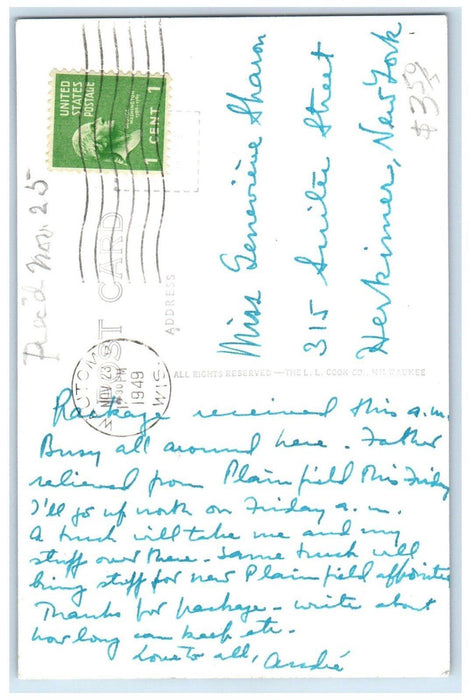 UNITED
STATES
POSTAGE
WASHINGTON
1789-1797
1 CENT 1
Rec'd Nov. 25
POST CARD
ADDRESS
Miss Genevieve Sharon
315 Street
Herkimer, New York
$3.50
NOV 23
30 PM
1949
WIS.
ALL RIGHTS RESERVED — THE L. L. COOK CO., MILWAUKEE
Package received this a.m.
Busy all around here. Father
relieved from Plainfield this Friday
I'll go up north on Friday a.m.
A truck will take me and my
stuff over there. Same truck will
bring stuff for new Plainfield appointee
Thanks for package - write about
how long can keep etc.
Love to all,